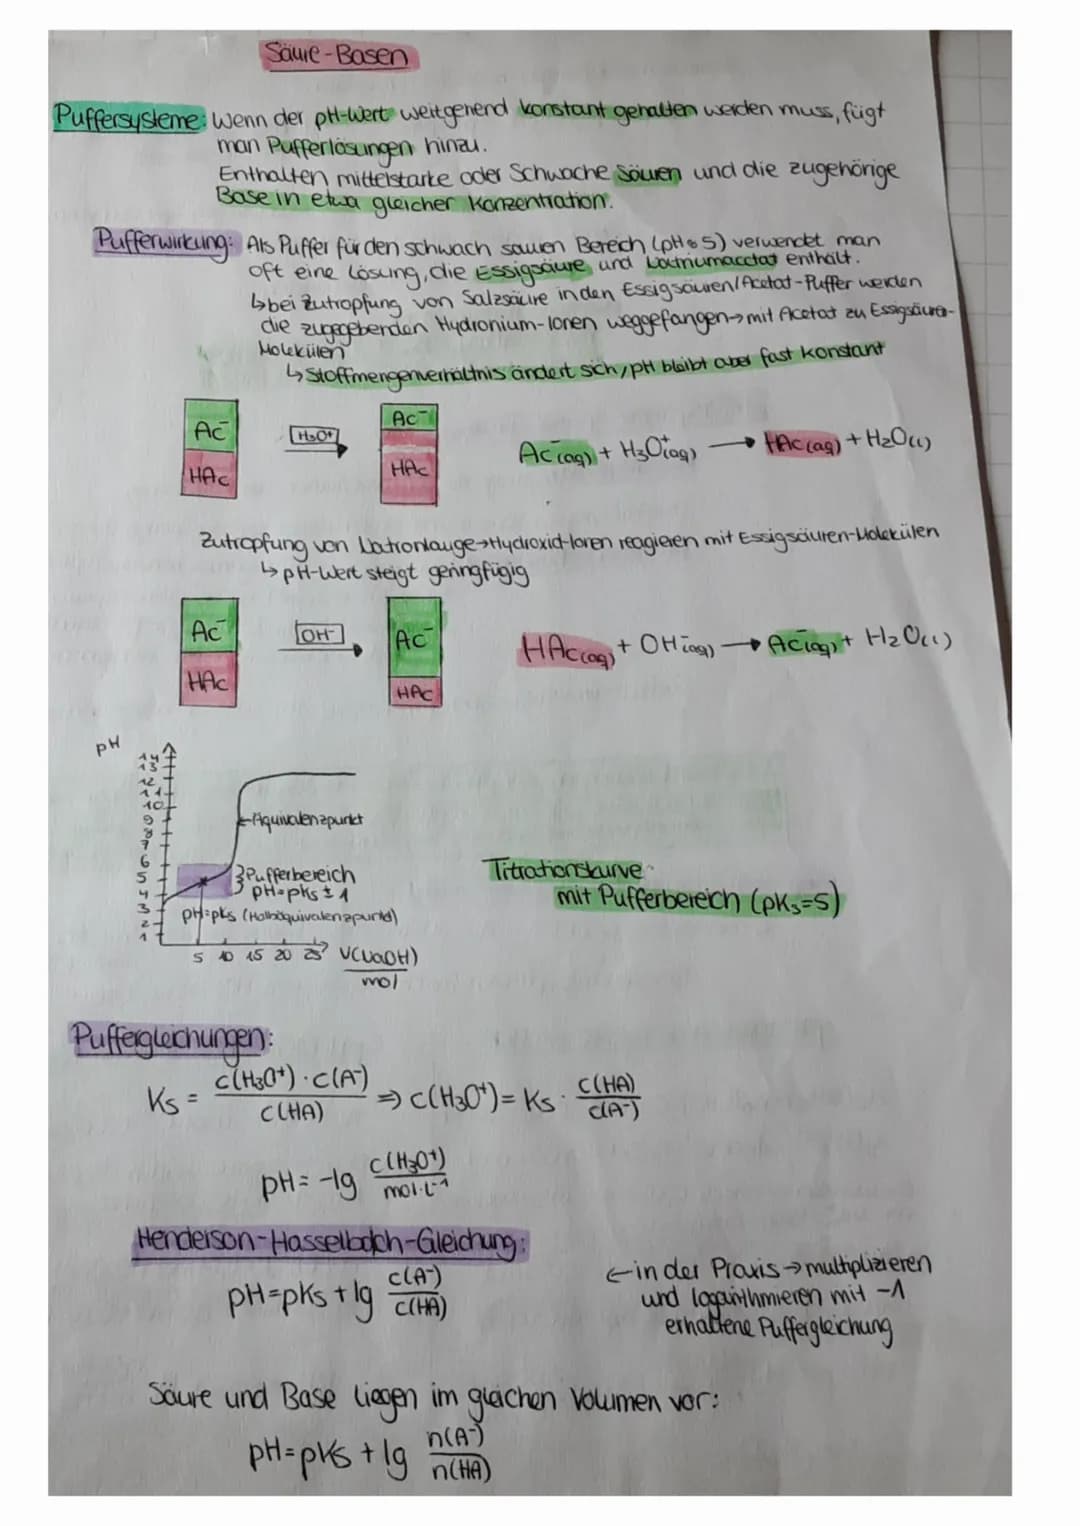 Säure-Basen
Puffersysteme: Wenn der pH-Wert weitgehend konstant gehalten werden muss, fügt
man Pufferlösungen hinzu.
Enthalten mittelstarke oder Schwache Säuren und die zugehörige
Base in etwa gleicher Konzentration.
Pufferwirkung: Als Puffer für den schwach sauren Bereich (pH≈5) verwendet man
oft eine Lösung, die Essigsäure und Natriumacetat enthält.
↳bei Zutropfung von Salzsäure in den Essigsäuren/Acetat-Puffer werden
die zugegebenden Hydronium-Ionen weggefangen→mit Acetat zu Essigsäure-
Molekülen
↳Stoffmengenverhältnis ändert sich, pH bleibt aber fast konstant
Ac⁻
HAc
H₃O⁺
Ac⁻
HAc
Ac⁻(aq) + H₃O⁺(aq) → HAc(aq) + H₂O(l)
Zutropfung von Natronlauge→Hydroxid-Ionen reagieren mit Essigsäuren-Molekülen
↳pH-Wert steigt geringfügig
Ac⁻
HAc
OH⁻
Ac⁻
HAc
HAc(aq) + OH⁻(aq) → Ac⁻(aq) + H₂O(l)
pH
14
13
12
11
10
9
8
7
6
5
4
3
2
1
←Äquivalenzpunkt
Pufferbereich
pH=pKs ± 1
pH=pKs (Halbäquivalenzpunkt)
5 10 15 20 25 V(NaOH)
mol
Titrationskurve
mit Pufferbereich (pKs=5)
Puffergleichungen:
Ks = c(H₃O⁺)·c(A⁻) / c(HA) ⇒ c(H₃O⁺) = Ks · c(HA) / c(A⁻)
pH = -lg c(H₃O⁺) / mol·L⁻¹
Henderson-Hasselbalch-Gleichung:
pH=pKs + lg c(A⁻) / c(HA)
←in der Praxis→multiplizieren
und logarithmieren mit -1
erhaltene Puffergleichung
Säure und Base liegen im gleichen Volumen vor:
pH=pKs + lg n(A⁻) / n(HA)